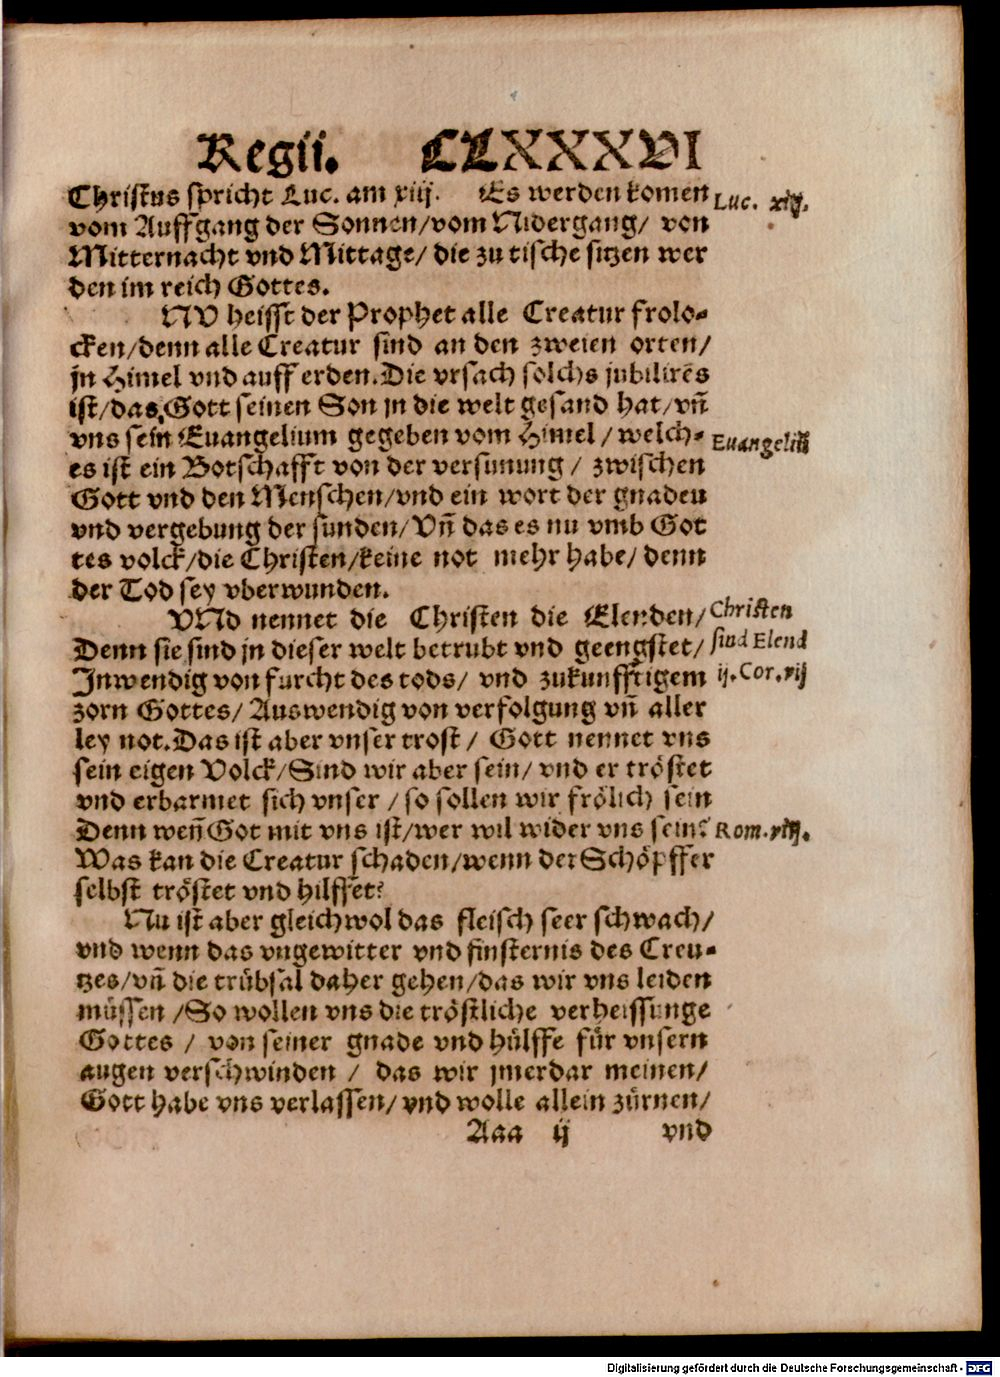 Regii. CLXXXVI
Christus spricht Luc. am xiij. Es werden komen
Luc. xiij.
vom Auffgang der Sonnen/vom Nidergang/ von
Mitternacht vnd Mittage/ die zu tische sitzen wer
den im reich Gottes.
NV heisst der Prophet alle Creatur frolo-
cken/denn alle Creatur sind an den zweien orten/
jn Himel vnd auff erden.Die vrsach solchs jubilirẽs
ist/das Gott seinen Son jn die welt gesand hat/vñ
vns sein Euangelium gegeben vom Himel/welch-
Euangeliũ
es ist ein Botschafft von der versunung/ zwischen
Gott vnd den Menschen/vnd ein wort der gnaden
vnd vergebung der sunden/Vñ das es nu vmb Got
tes volck/die Christen/keine not mehr habe/ denn
der Tod sey vberwunden.
VNd nennet die Christen die Elenden/
Christen
Denn sie sind jn dieser welt betrubt vnd geengstet/
sind Elend
Inwendig von furcht des tods/ vnd zukunfftigem
ij.Cor.vij
zorn Gottes/ Auswendig von verfolgung vñ aller
ley not.Das ist aber vnser trost/ Gott nennet vns
sein eigen Volck/Sind wir aber sein/ vnd er tröstet
vnd erbarmet sich vnser /so sollen wir frölich sein
Denn weñ Got mit vns ist/wer wil wider vns sein?
Rom.viij.
Was kan die Creatur schaden/wenn der Schöpffer
selbst tröstet vnd hilffet?
Nu ist aber gleichwol das fleisch seer schwach/
vnd wenn das vngewitter vnd finsternis des Creu-
tzes/vñ die trübsal daher gehen/das wir vns leiden
müssen /So wollen vns die tröstliche verheissunge
Gottes / von seiner gnade vnd hülffe für vnsern
augen verschwinden / das wir jmerdar meinen/
Gott habe vns verlassen/ vnd wolle allein zürnen/
Aaa ij vnd
Digitalisierung gefördert durch die Deutsche Forschungsgemeinschaft - DFG